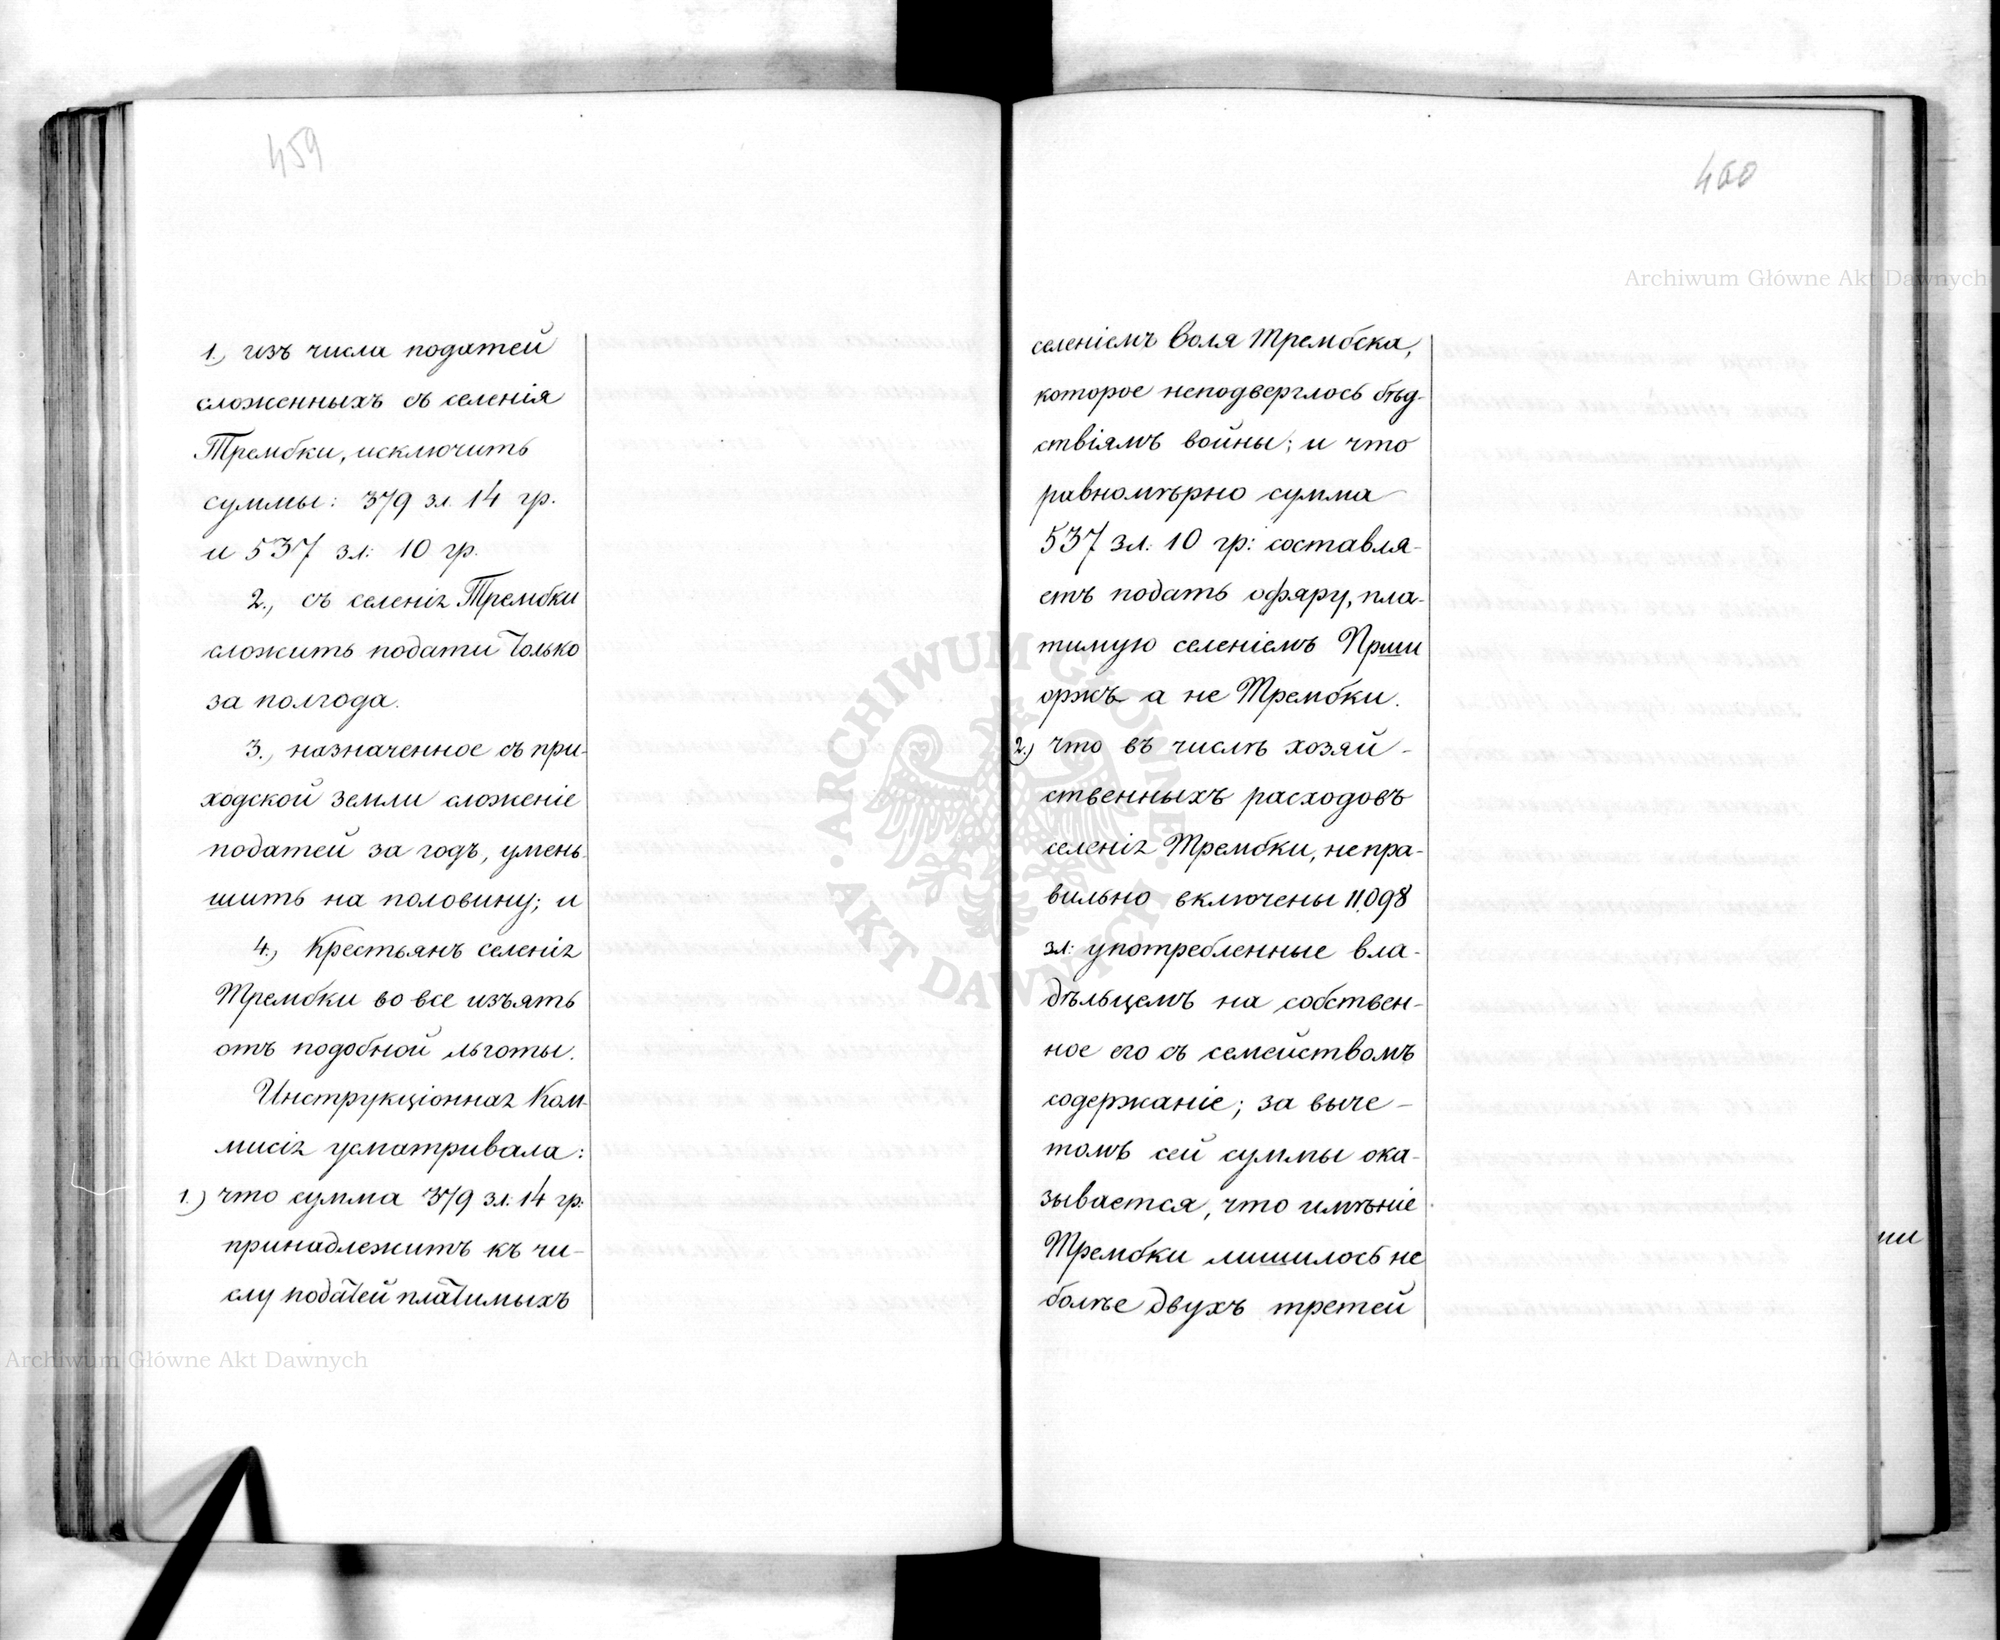 459
1., изъ числа податей
сложенныхъ съ селенія
Трембки, исключить
суммы: 379 зл. 14 гр.
и 537 зл: 10 гр.
2., съ селенія Трембки
сложить подати только
за полгода.
3., назначенное съ при-
ходской земли сложеніе
податей за годъ, умень-
шить на половину; и
4., Крестьянъ селенія
Трембки во все изъять
отъ подобной льготы.
Инструкціонная Ком-
мисія усматривала:
1.) что сумма 379 зл: 14 гр:
принадлежитъ къ чи-
слу податей платимыхъ
460
селеніемъ Воля Трембска,
которое неподверглось бѣд-
ствіямъ войны; и что
равномѣрно сумма
537 зл: 10 гр: составля-
етъ подать офяру, пла-
тимую селеніемъ Приш
оржъ а не Трембки.
2.) что въ числѣ хозяй-
ственныхъ расходовъ
селенія Трембки, непра-
вильно включены 11,098
зл: употребленные вла-
дѣльцемъ на собствен-
ное его съ семействомъ
содержаніе; за выче-
томъ сей суммы ока-
зывается, что имѣніе
Трембки лишилось не
болѣе двухъ третей
Archiwum Główne Akt Dawnych
Archiwum Główne Akt Dawnych
ARCHIWUM GŁÓWNE AKT DAWNYCH